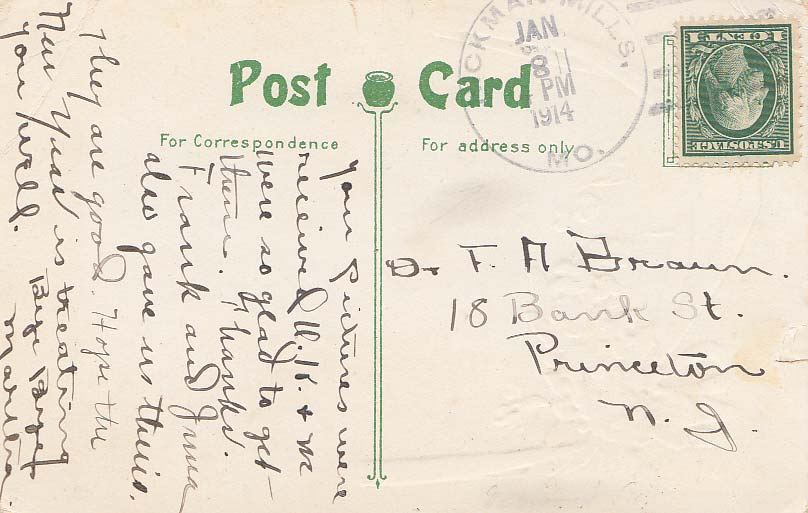 Post Card
For Correspondence
For address only
CKMAN MILLS.
JAN.
8
PM
1914
MO.
U.S. POSTAGE
1 CENT 1
Dr F. A Braun.
18 Bank St.
Princeton
N. J.
Your Pictures were
received O.K. & we
were so glad to get
them. Thanks.
Frank and Irma
also gave us theirs.
They are good. Hope the
New Year is treating
you well.
Bye Bye